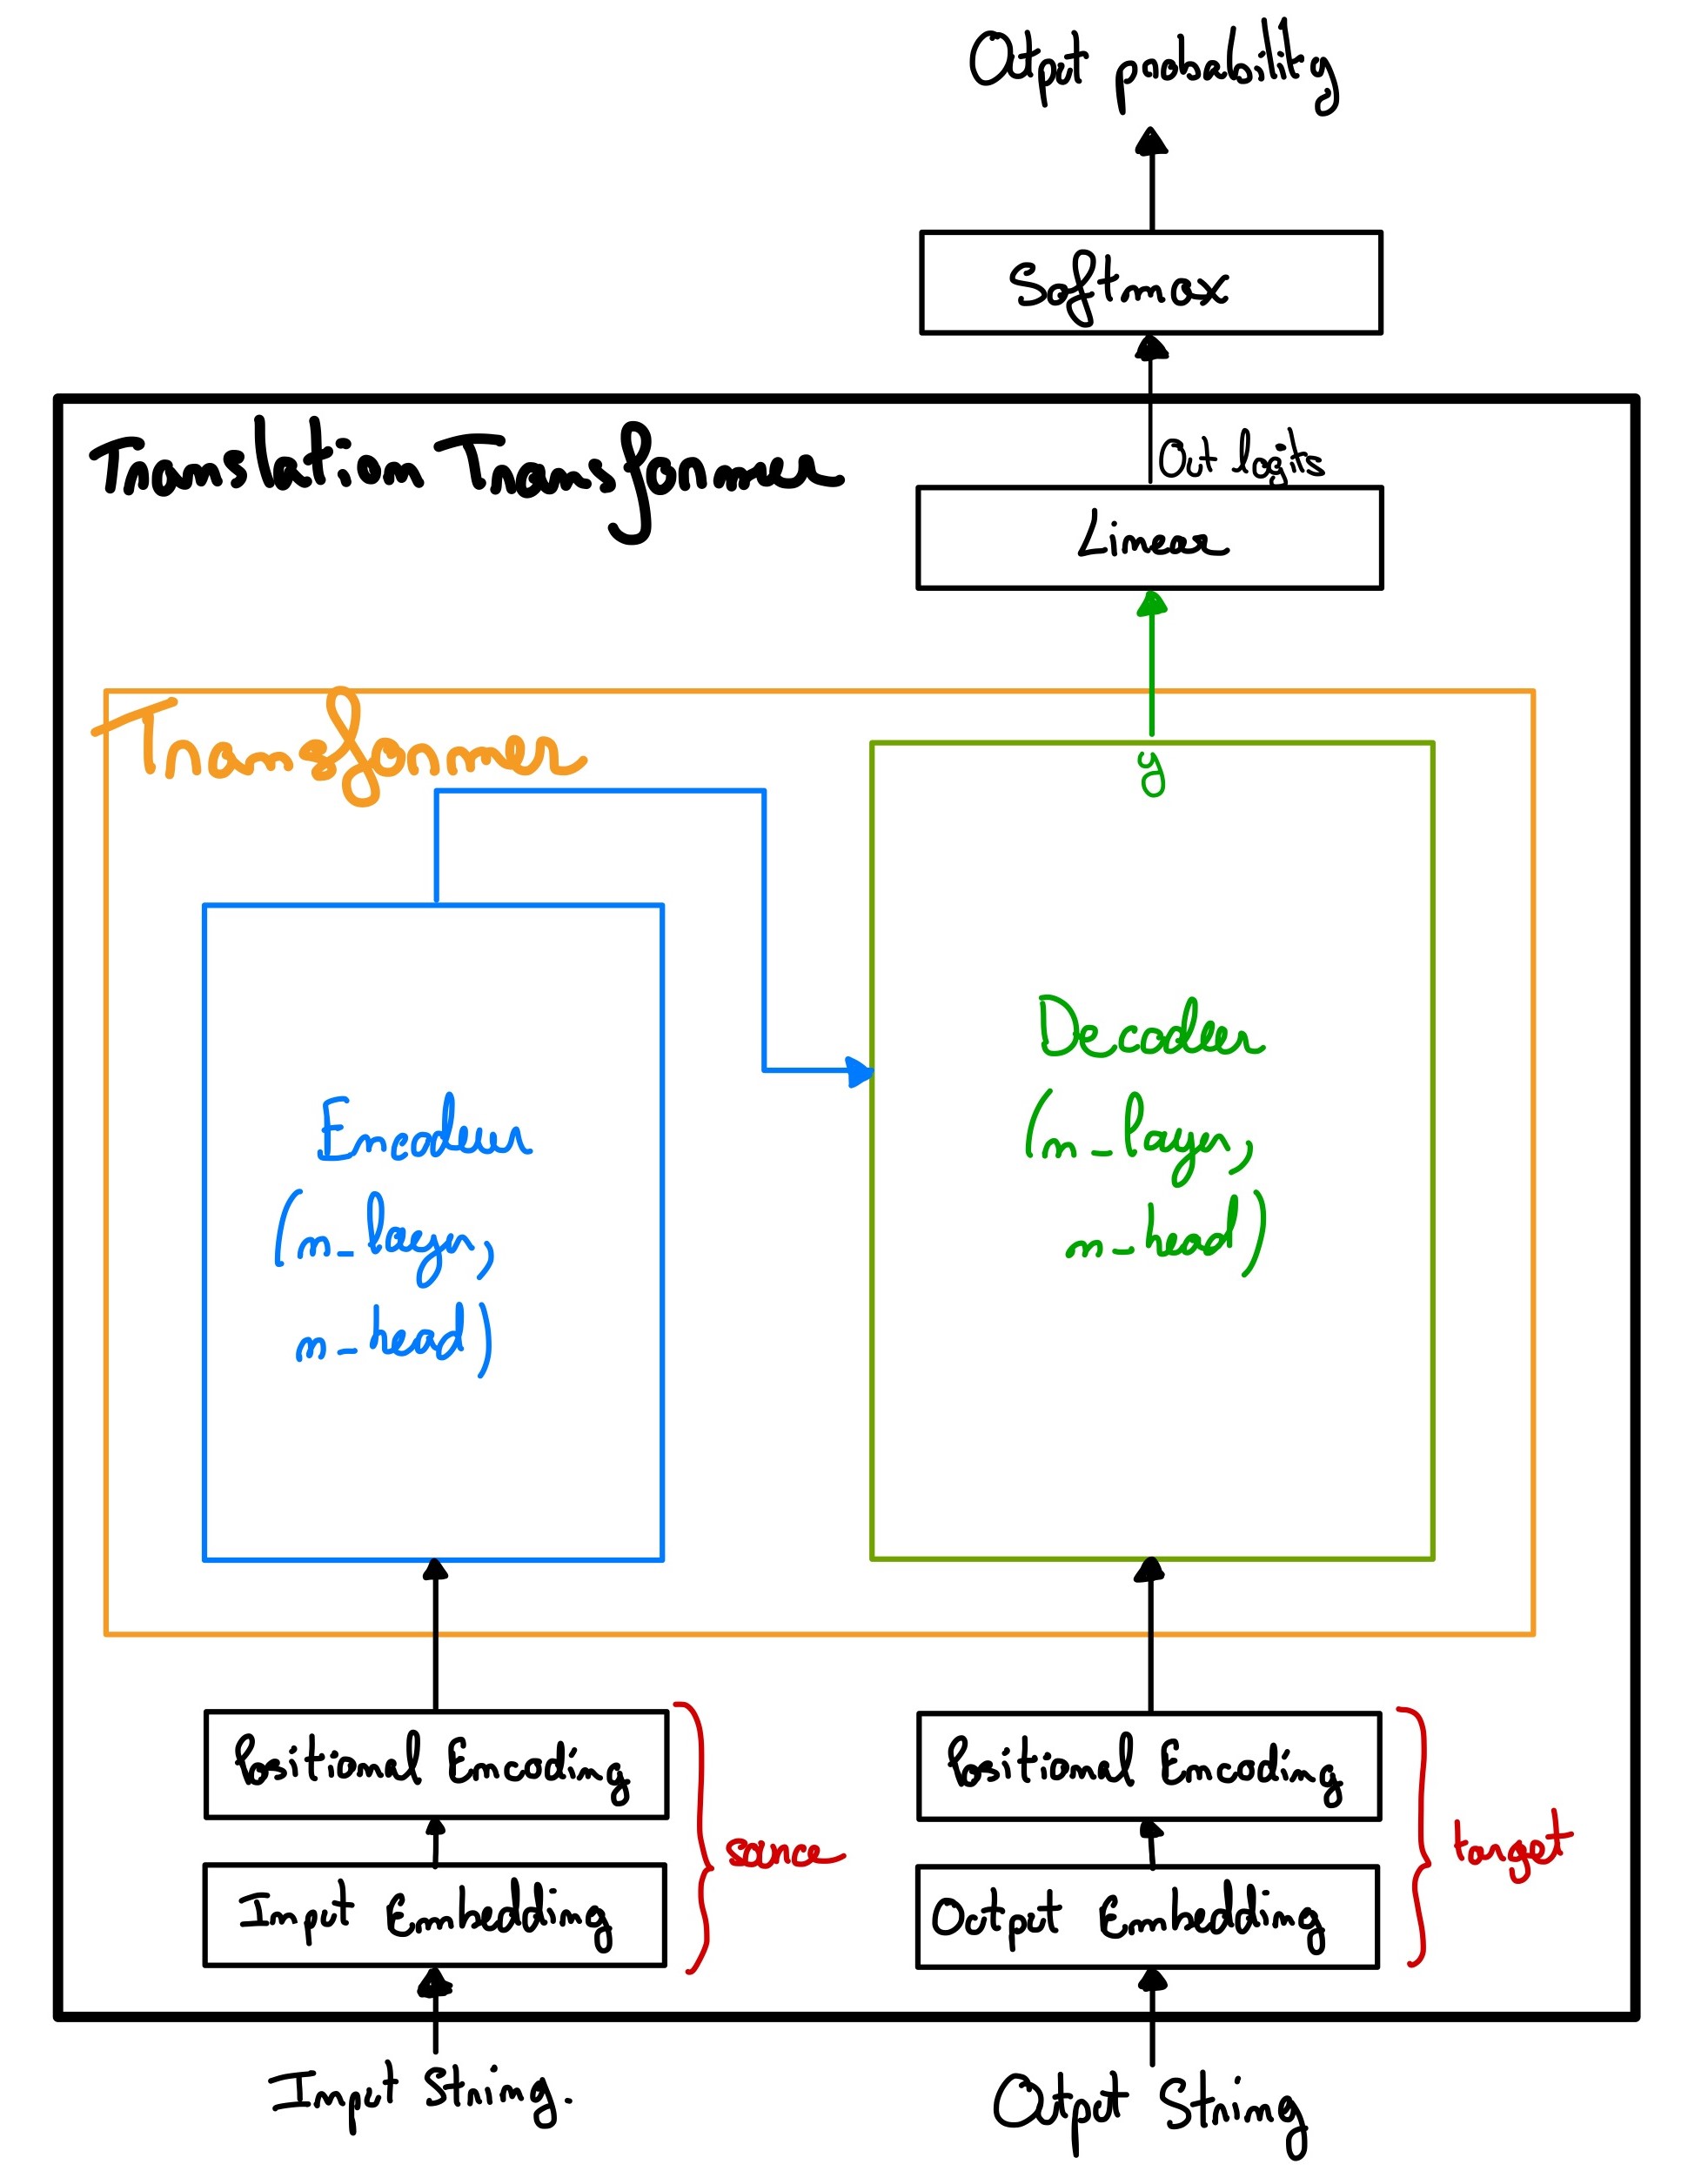 Output probability
Softmax
Translation Transformer
Out logits
Linear
Transformer
y
Encoder
(n_layer,
n_head)
Decoder
(n_layer,
n_head)
Positional Encoding
Input Embedding
source
Positional Encoding
Output Embedding
target
Input String.
Output String